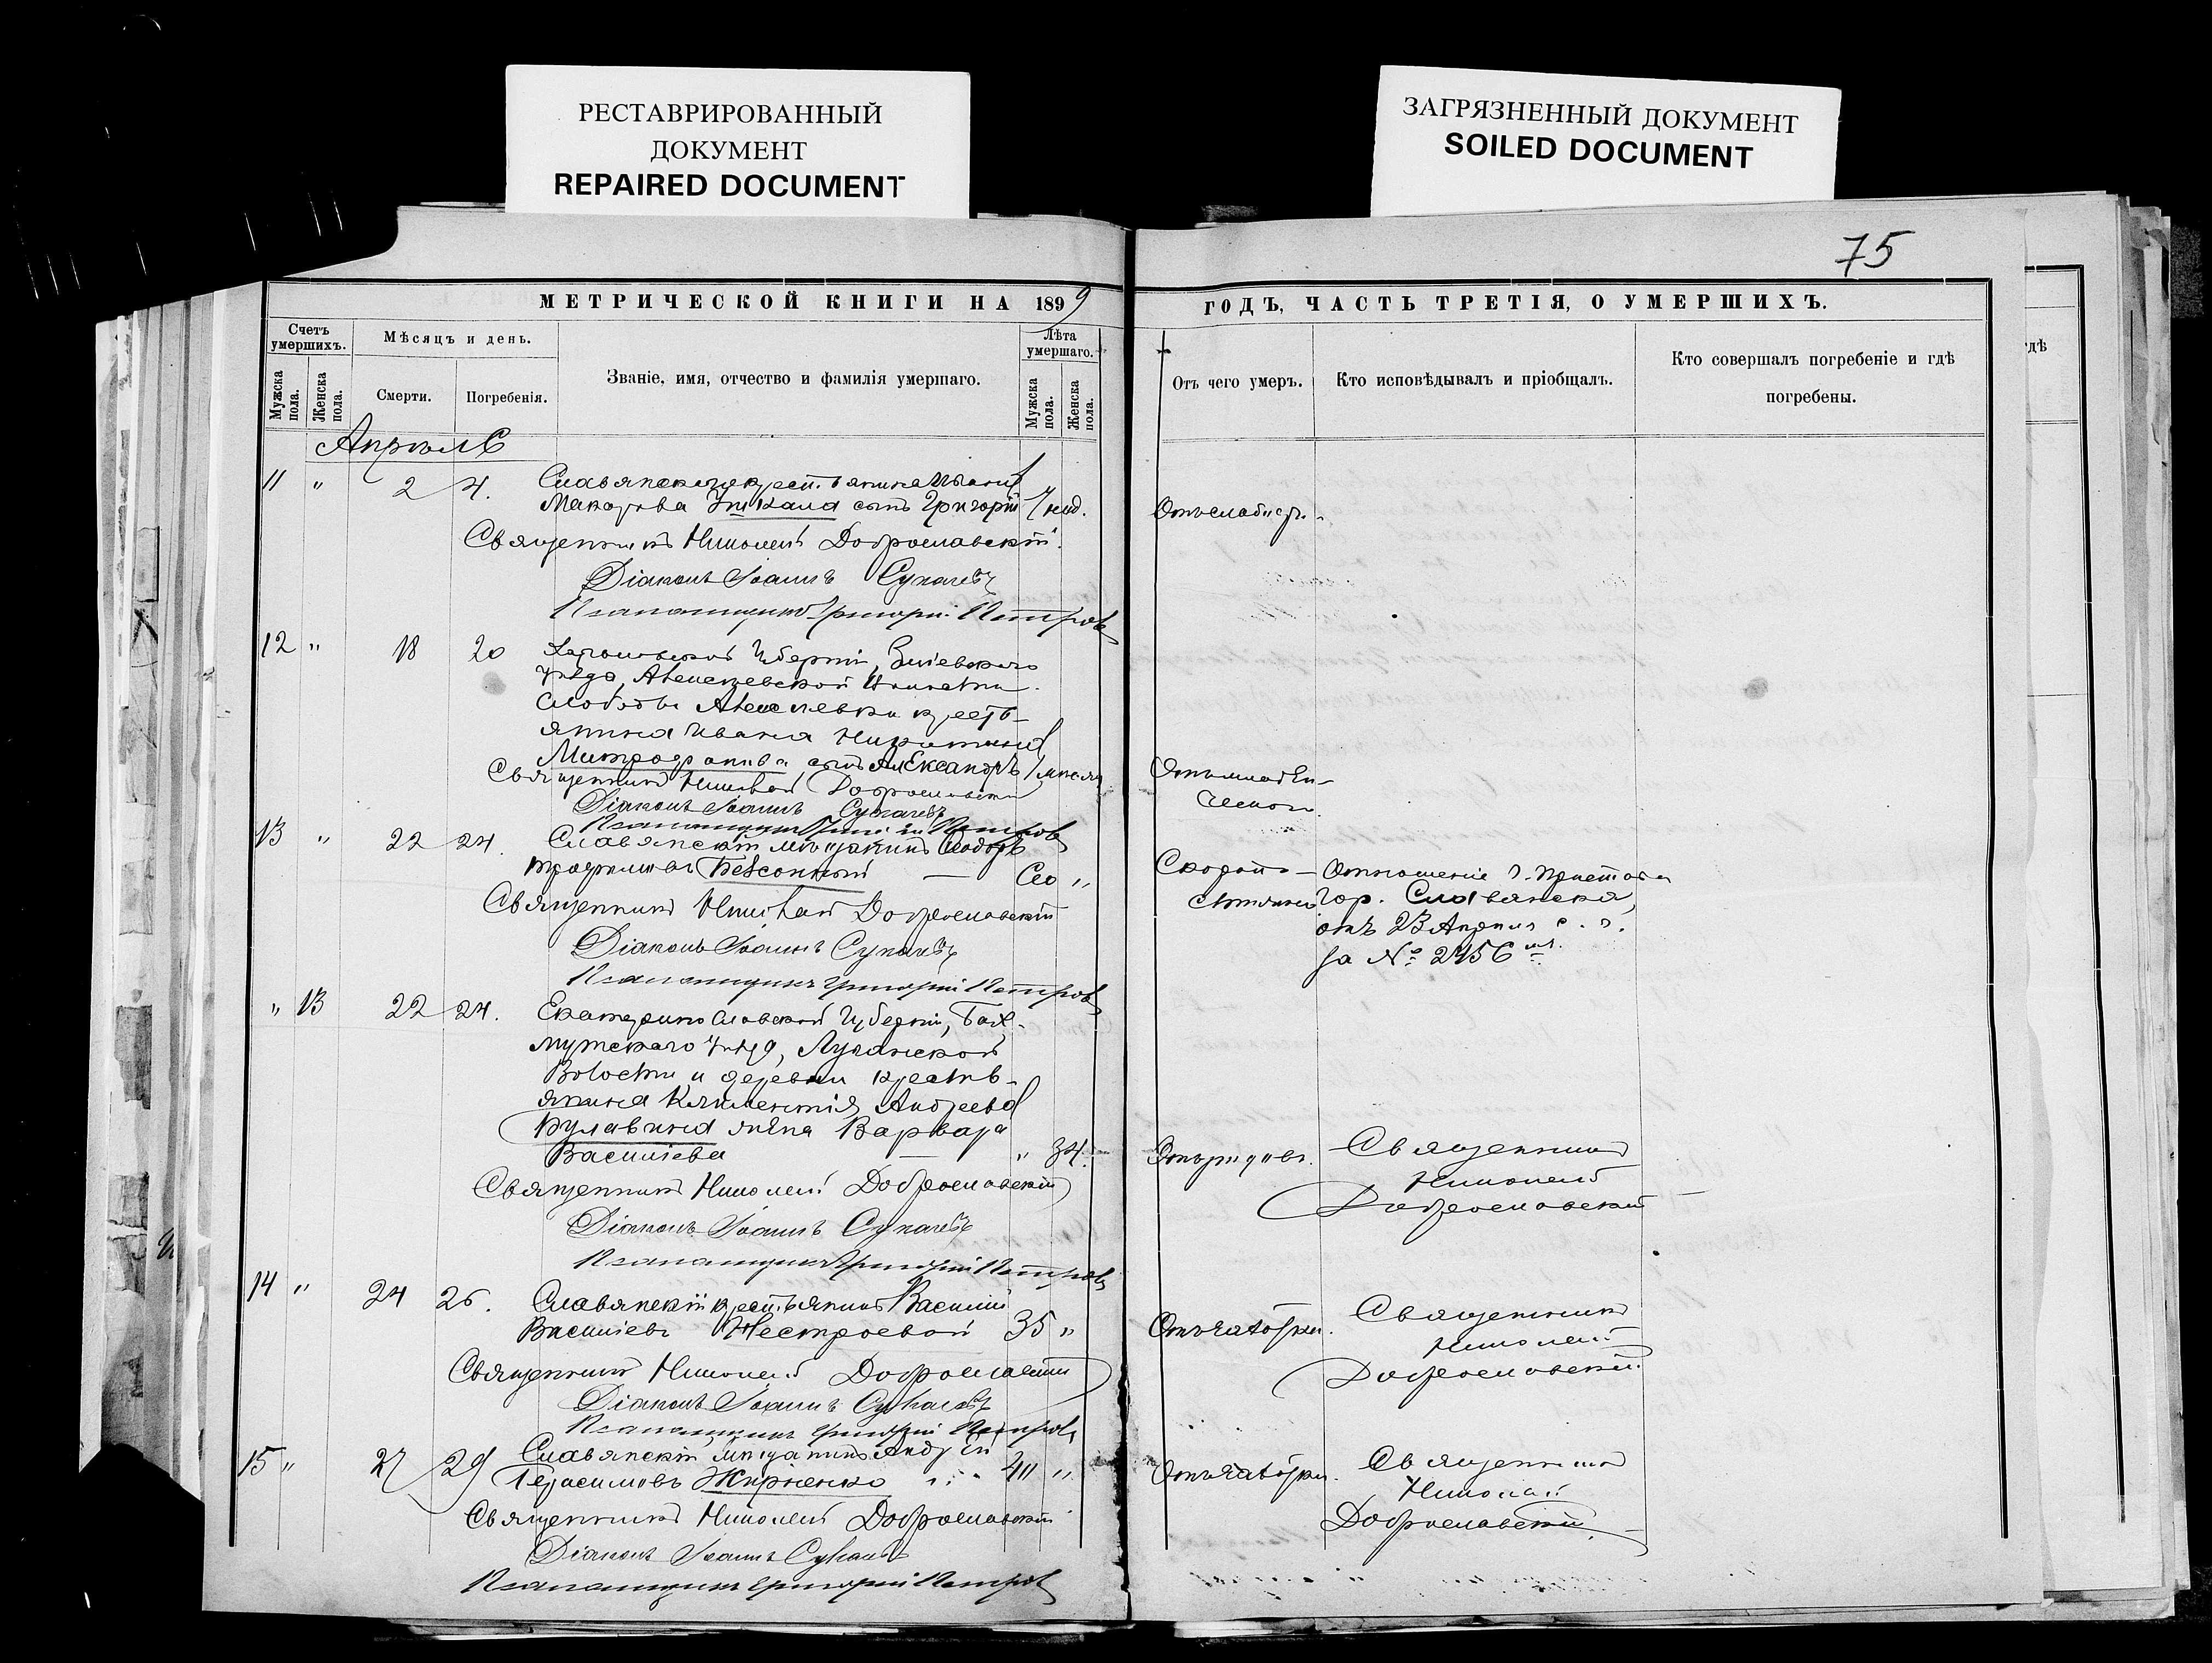 РЕСТАВРИРОВАННЫЙ
ДОКУМЕНТ
REPAIRED DOCUMENT
ЗАГРЯЗНЕННЫЙ ДОКУМЕНТ
SOILED DOCUMENT
75
МЕТРИЧЕСКОЙ КНИГИ НА 1899
ГОДЪ, ЧАСТЬ ТРЕТІЯ, О УМЕРШИХЪ.
Счетъ умершихъ.
Мужска пола.
Женска пола.
Мѣсяцъ и день.
Смерти.
Погребенія.
Званіе, имя, отчество и фамилія умершаго.
Лѣта умершаго.
Мужска пола.
Женска пола.
Отъ чего умеръ.
Кто исповѣдывалъ и пріобщалъ.
Кто совершалъ погребеніе и гдѣ
погребены.
гдѣ
Апрѣль
11 " 2 4. Славянскаго крестьянина Иванова
Макарова сынъ Григорій 7 нед.
Священникъ Николай Доброславскій
Діаконъ Іоаннъ Сукачевъ
Псаломщикъ Григорій Петровъ
12 " 18 20 Харьковской Губерніи, Зміевскаго
уѣзда, Алексѣевской Волости
слободы Алексѣевки кресть-
янина Ивана Никитина
Митрофанова сынъ Александръ 1 мѣсяц
Отъ младен-
ческой
Священникъ Николай Доброславскій
Діаконъ Іоаннъ Сукачевъ
Псаломщикъ Григорій Петровъ
13 " 22 24. Славянскій мѣщанинъ Ѳеодоръ
Трофимовъ Безсонный — "
Скоропо-
стижно
Отношеніе г. Пристава
гор. Славянска,
отъ 23 Апрѣля с. г.
за № 2456
Священникъ Николай Доброславскій
Діаконъ Іоаннъ Сукачевъ
Псаломщикъ Григорій Петровъ
" 13 22 24. Екатеринославской Губерніи, Бах-
мутскаго уѣзда, Луганской
Волости и деревни кресть-
янина Климентія Андреева
Булавина жена Варвара
Васильева — " 34.
Отъ родовъ.
Священникъ
Николай
Доброславскій
Священникъ Николай Доброславскій
Діаконъ Іоаннъ Сукачевъ
Псаломщикъ Григорій Петровъ
14 " 24 26. Славянскій крестьянинъ Василій
Васильевъ Нестроевой 35 "
Отъ чахотки.
Священникъ
Николай
Доброславскій
Священникъ Николай Доброславскій
Діаконъ Іоаннъ Сукачевъ
Псаломщикъ Григорій Петровъ
15 " 27 29 Славянскій мѣщанинъ Андрей
Герасимовъ Жирненко "
Отъ чахотки.
Священникъ
Николай
Доброславскій
Священникъ Николай Доброславскій
Діаконъ Іоаннъ Сукачевъ
Псаломщикъ Григорій Петровъ